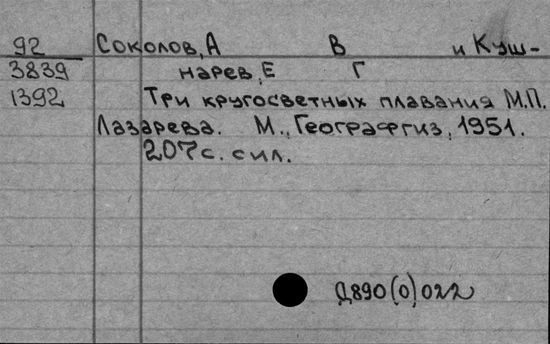 92 Соколов, А В и Куш-
3839 нарев, Е Г
1392 Три кругосветных плавания М.П.
Лазарева. М., Географгиз, 1951.
207 с. с ил.
Д890(0)022